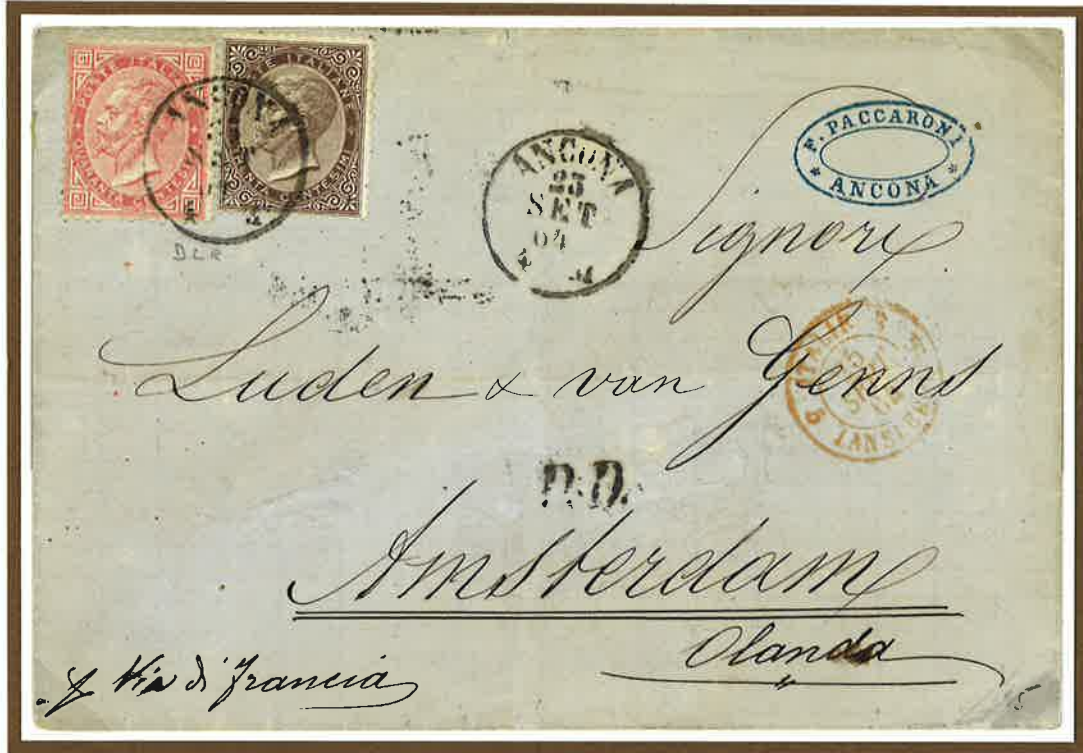 POSTE ITALIANE
QUARANTA CENTESIMI
POSTE ITALIANE
CENTESIMI
ANCONA
ANCONA
23
SET
64
F. PACCARONI
* ANCONA *
DLR
Signori
Luden & van Genns
ITALIE
5 LANSLEB
P.D.
Amsterdam
Olanda
Via di Francia
5